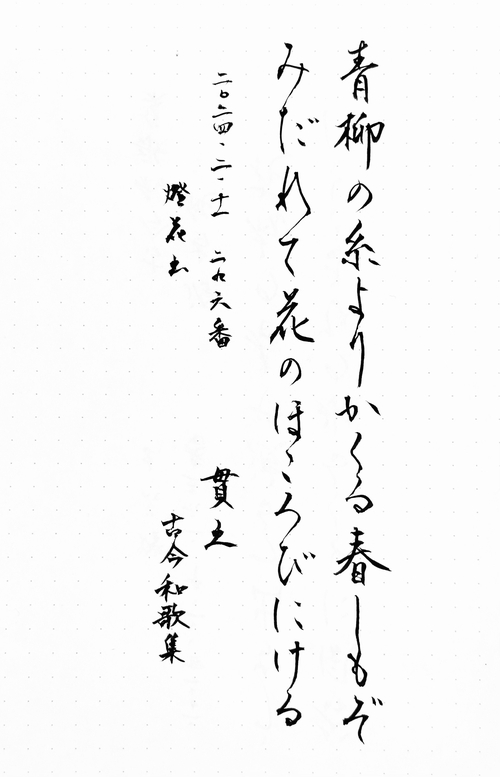 青柳の糸よりかくる春しもぞ
みだれて花のほころびにける
二〇二四・二・十一 二九六番 貫之
燈花書 古今和歌集